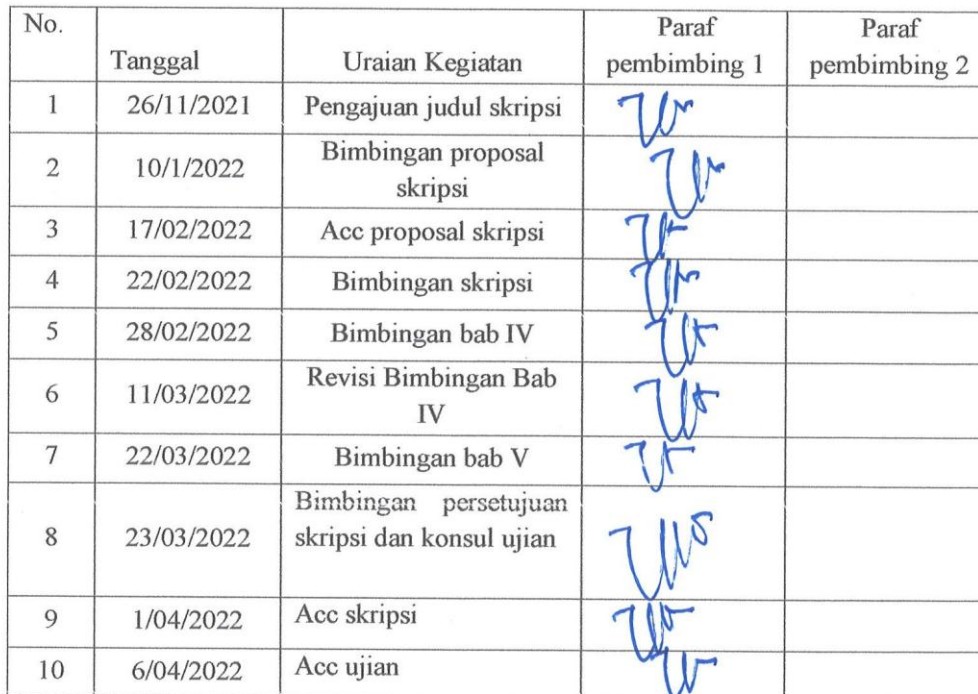 No. Tanggal Uraian Kegiatan Paraf pembimbing 1 Paraf pembimbing 2
1 26/11/2021 Pengajuan judul skripsi
2 10/1/2022 Bimbingan proposal
skripsi
3 17/02/2022 Acc proposal skripsi
4 22/02/2022 Bimbingan skripsi
5 28/02/2022 Bimbingan bab IV
6 11/03/2022 Revisi Bimbingan Bab
IV
7 22/03/2022 Bimbingan bab V
8 23/03/2022 Bimbingan persetujuan
skripsi dan konsul ujian
9 1/04/2022 Acc skripsi
10 6/04/2022 Acc ujian